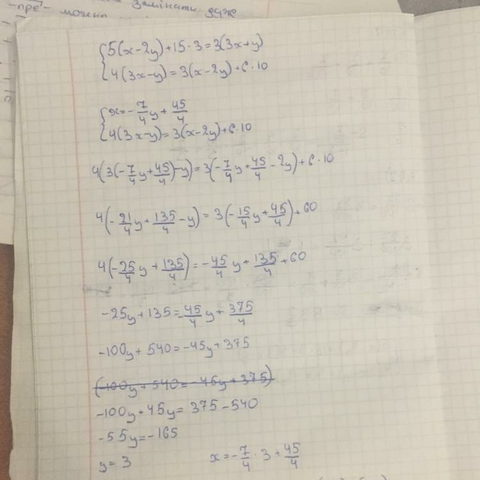 -пре- можна замінити
{5(x-2y)+15·3=3(3x+y)
4(3x-y)=3(x-2y)+6·10
{x=-7/4y+45/4
4(3x-y)=3(x-2y)+6·10
4(3(-7/4y+45/4)-y)=3(-7/4y+45/4-2y)+6·10
4(-21/4y+135/4-y)=3(-15/4y+45/4)+60
4(-25/4y+135/4)=-45/4y+135/4+60
-25y+135=-45/4y+375/4
-100y+540=-45y+375
(-100y+540=-45y+375)
-100y+45y=375-540
-55y=-165
y=3 x=-7/4·3+45/4